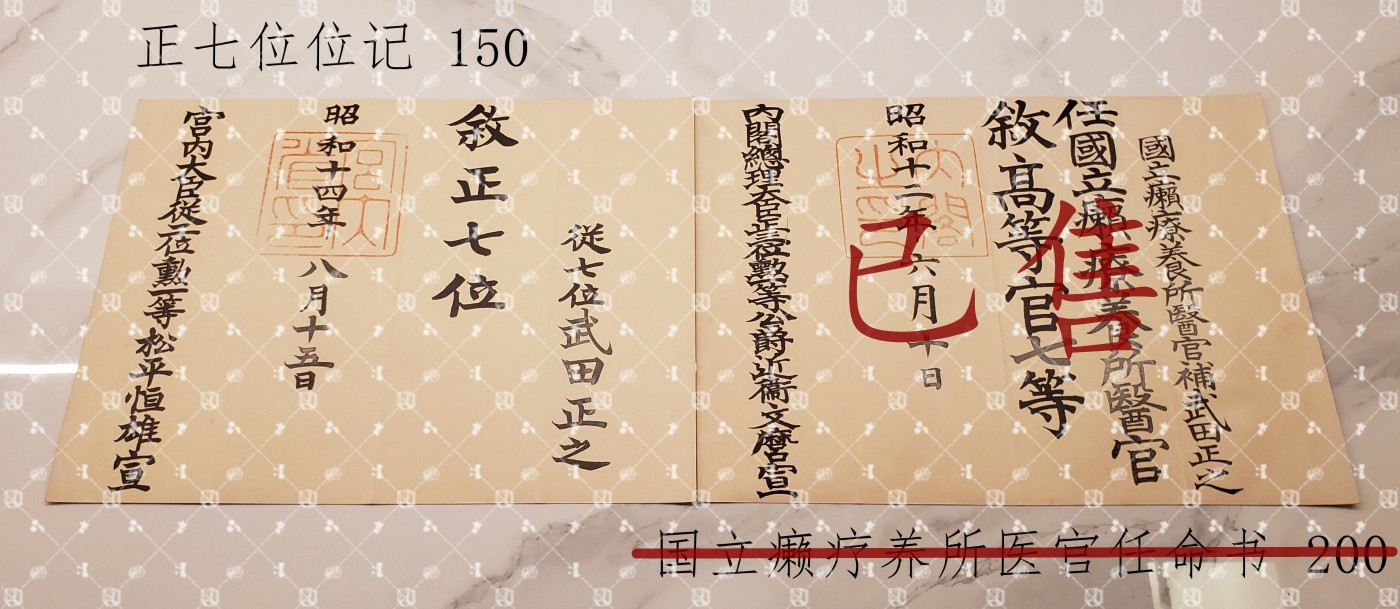 正七位位记 150
國立癩療養所醫官補武田正之
任國立癩療養所醫官
敘高等官七等
昭和十二年六月十日
內閣總理大臣正二位勲一等公爵近衞文麿宣
內閣之印
已售
從七位武田正之
敘正七位
昭和十四年八月十五日
宮内大臣從二位勲一等松平恒雄宣
宮内省印
国立癞疗养所医官任命书 200